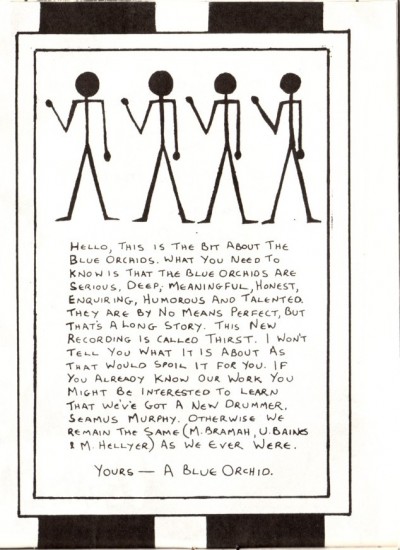 Hello, This is The Bit About The
Blue Orchids. What You Need To
Know is That The Blue Orchids Are
Serious, Deep, Meaningful, Honest,
Enquiring, Humorous And Talented.
They are By No Means Perfect, But
That's A Long Story. This New
Recording is Called Thirst. I Won't
Tell You What It Is About As
That Would Spoil It For You. If
You Already Know Our Work You
Might Be Interested To Learn
That We've Got A New Drummer,
Seamus Murphy. Otherwise We
Remain The Same (M. Bramah, U. Baines
& M. Hellyer) As We Ever Were.
Yours — A Blue Orchid.